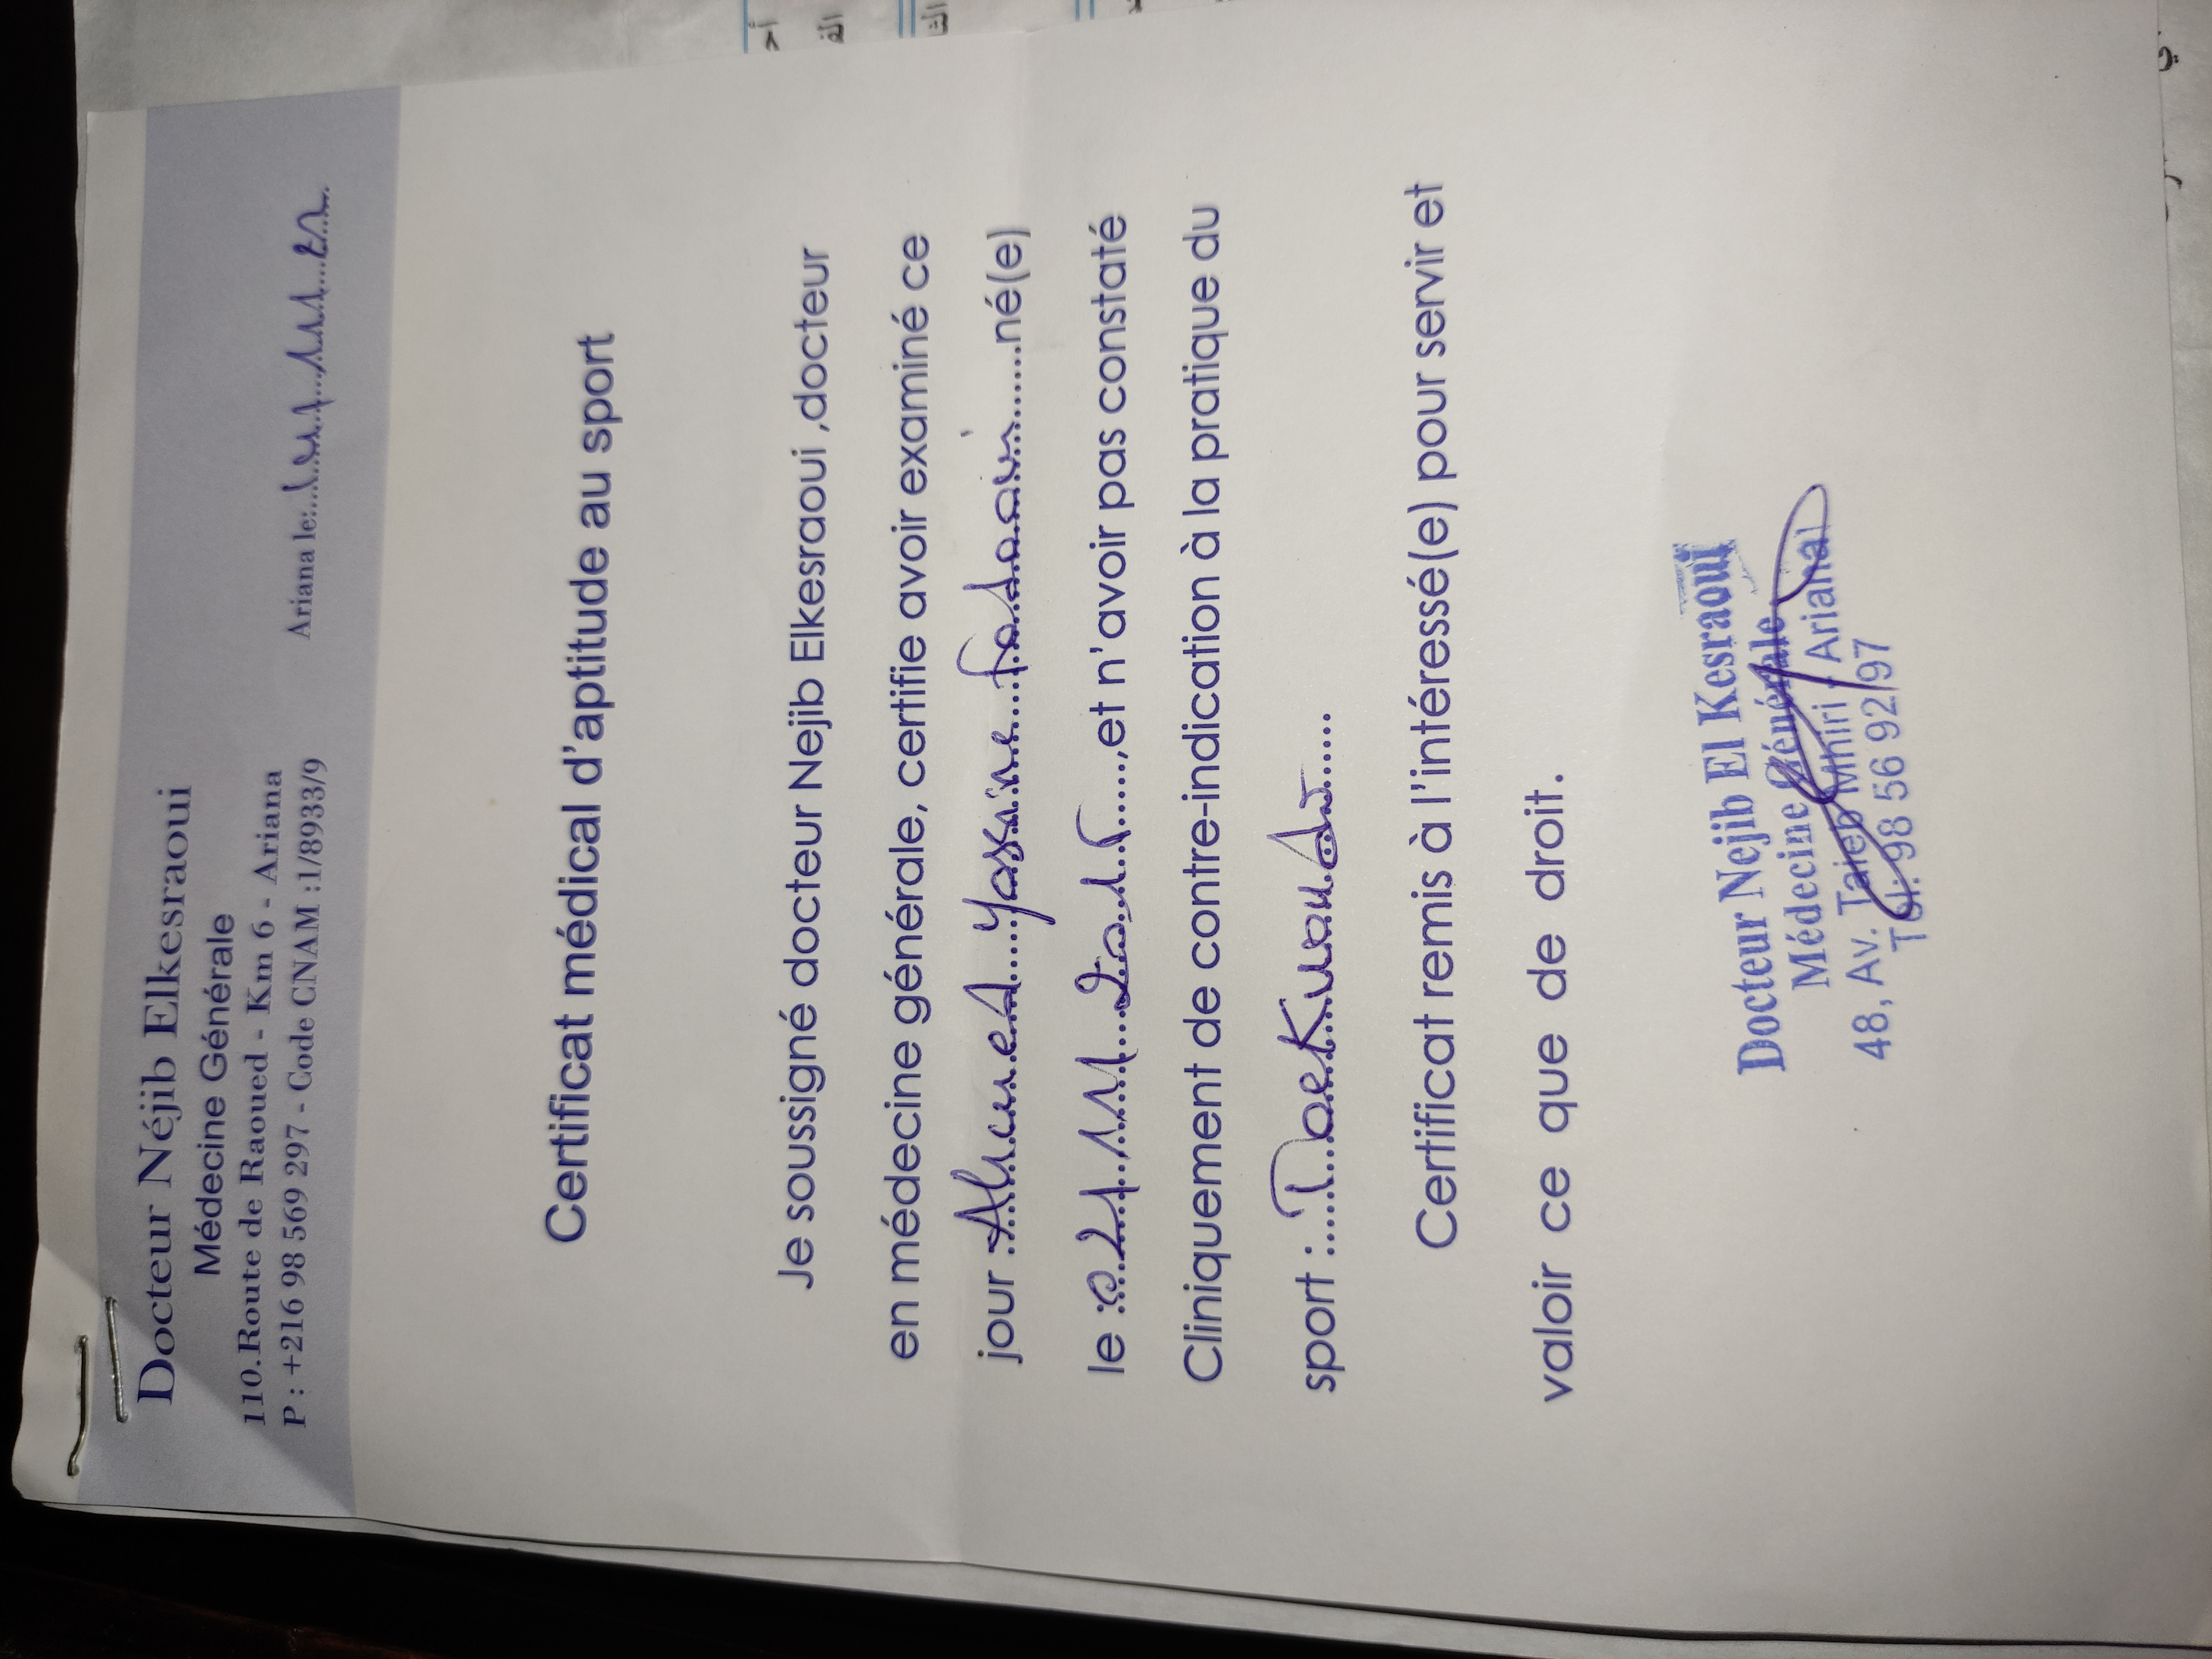 Docteur Néjib Elkesraoui
Médecine Générale
110.Route de Raoued - Km 6 - Ariana
P : +216 98 569 297 - Code CNAM :1/8933/9
Ariana le:
Certificat médical d'aptitude au sport
Je soussigné docteur Nejib Elkesraoui ,docteur
en médecine générale, certifie avoir examiné ce
jour : Ahmed Yassine né(e)
le : ,et n'avoir pas constaté
Cliniquement de contre-indication à la pratique du
sport : Taekwondo
Certificat remis à l'intéressé(e) pour servir et
valoir ce que de droit.
Docteur Nejib El Kesraoui
Médecine Générale
48, Av. Taieb Mhiri - Ariana
Tél: 98 56 92 97